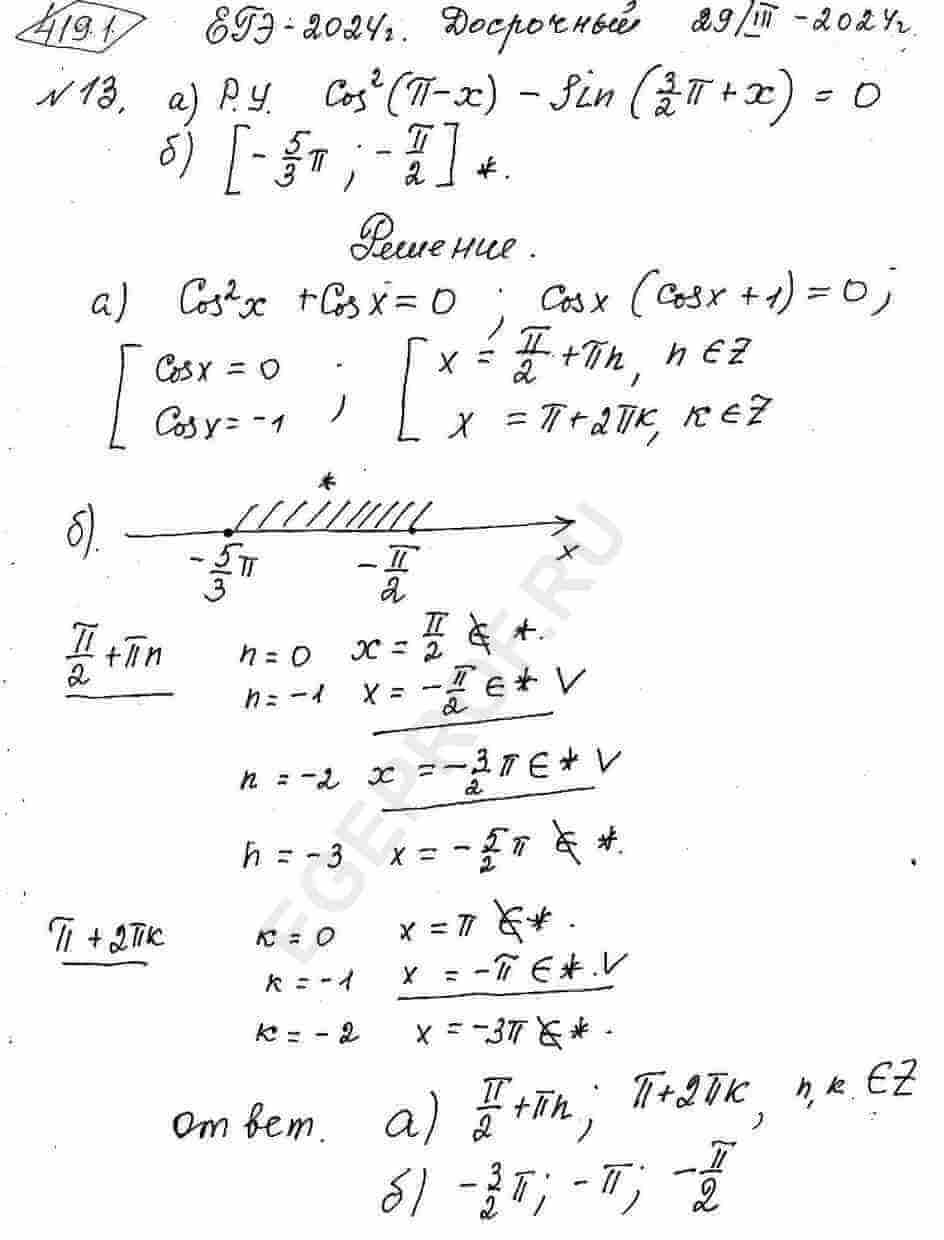 419.1. ЕГЭ-2024г. Досрочный 29/III-2024г.
№13. а) Р.У. Cos²(π-x) - Sin(3/2π+x) = 0
б) [-5/3π; -π/2] *.
Решение.
а) Cos²x + Cosx = 0; Cosx (Cosx+1) = 0;
[Cosx = 0; [x = π/2 + πn, n ∈ Z
Cosx = -1; x = π+2πк, к ∈ Z
*
б).
-5/3π -π/2 x
π/2+πn n = 0 x = π/2 ∉ *.
n = -1 x = -π/2 ∈ * V
n = -2 x = -3/2π ∈ * V
n = -3 x = -5/2π ∉ *.
π+2πк к = 0 x = π ∉ *.
к = -1 x = -π ∈ *. V
к = -2 x = -3π ∉ *.
ответ. а) π/2+πn; π+2πк, n, к ∈ Z
б) -3/2π; -π; -π/2
EGEPROF.RU